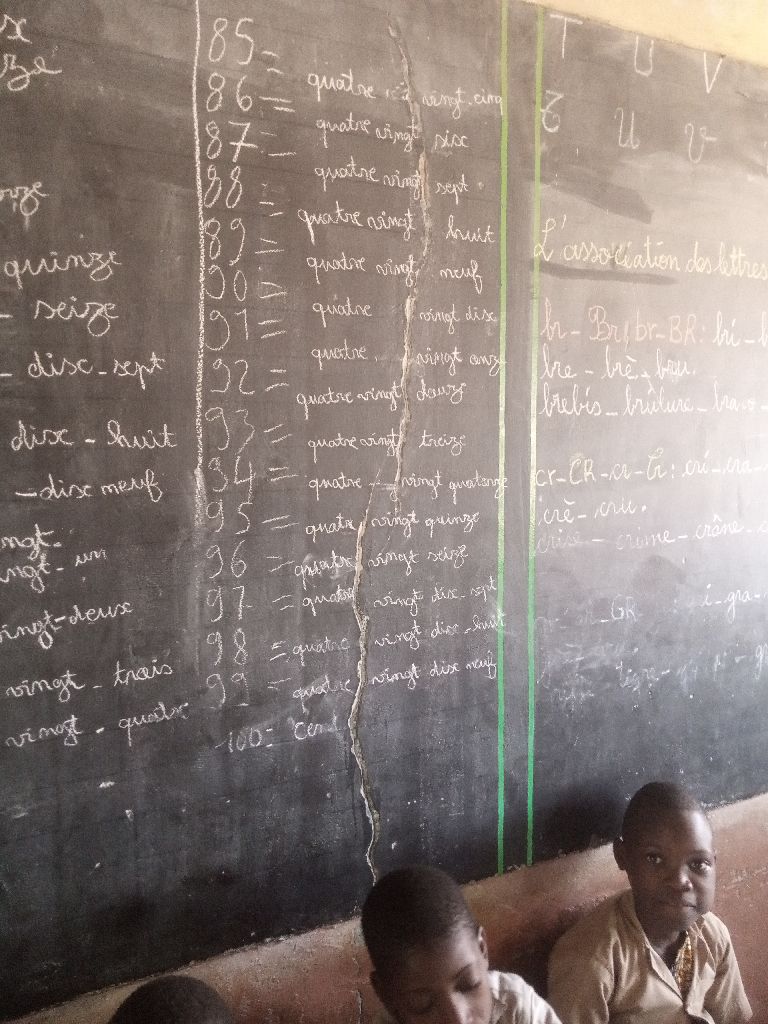 quinze
seize
disc-sept
disc-huit
-disc neuf
vingt-deux
vingt-trois
vingt-quatre
85 = quatre vingt-cinq
86 = quatre vingt six
87 = quatre vingt sept
88 = quatre vingt huit
89 = quatre vingt neuf
90 = quatre vingt disc
91 = quatre vingt onze
92 = quatre vingt douze
93 = quatre vingt treize
94 = quatre - vingt quatorze
95 = quatre vingt quinze
96 = quatre vingt seize
97 = quatre vingt disc-sept
98 = quatre vingt disc-huit
99 = quatre vingt disc neuf
100 = cent
T U V
u v
L'association des lettres
br - Br, br - BR: bri -
bre - brè - brou.
brebis - brûlure - bravo -
cr - CR - cr - Cr: cri - cra -
crè - crue.
crise - crame - crâne -
GR i - gra -
tigre